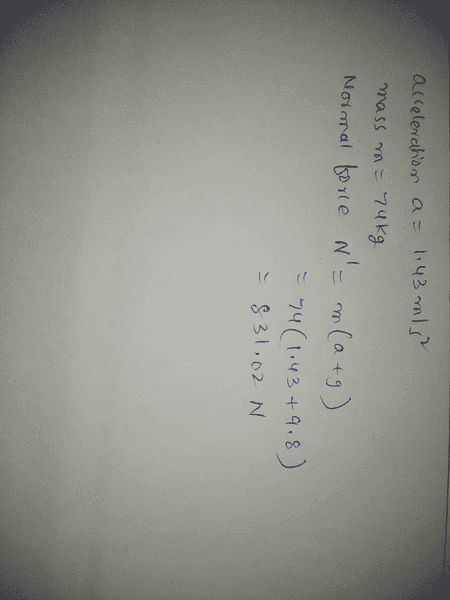 acceleration a = 1.43 m/s²
mass m = 74kg
Normal force N' = m(a+g)
= 74(1.43+9.8)
= 831.02 N